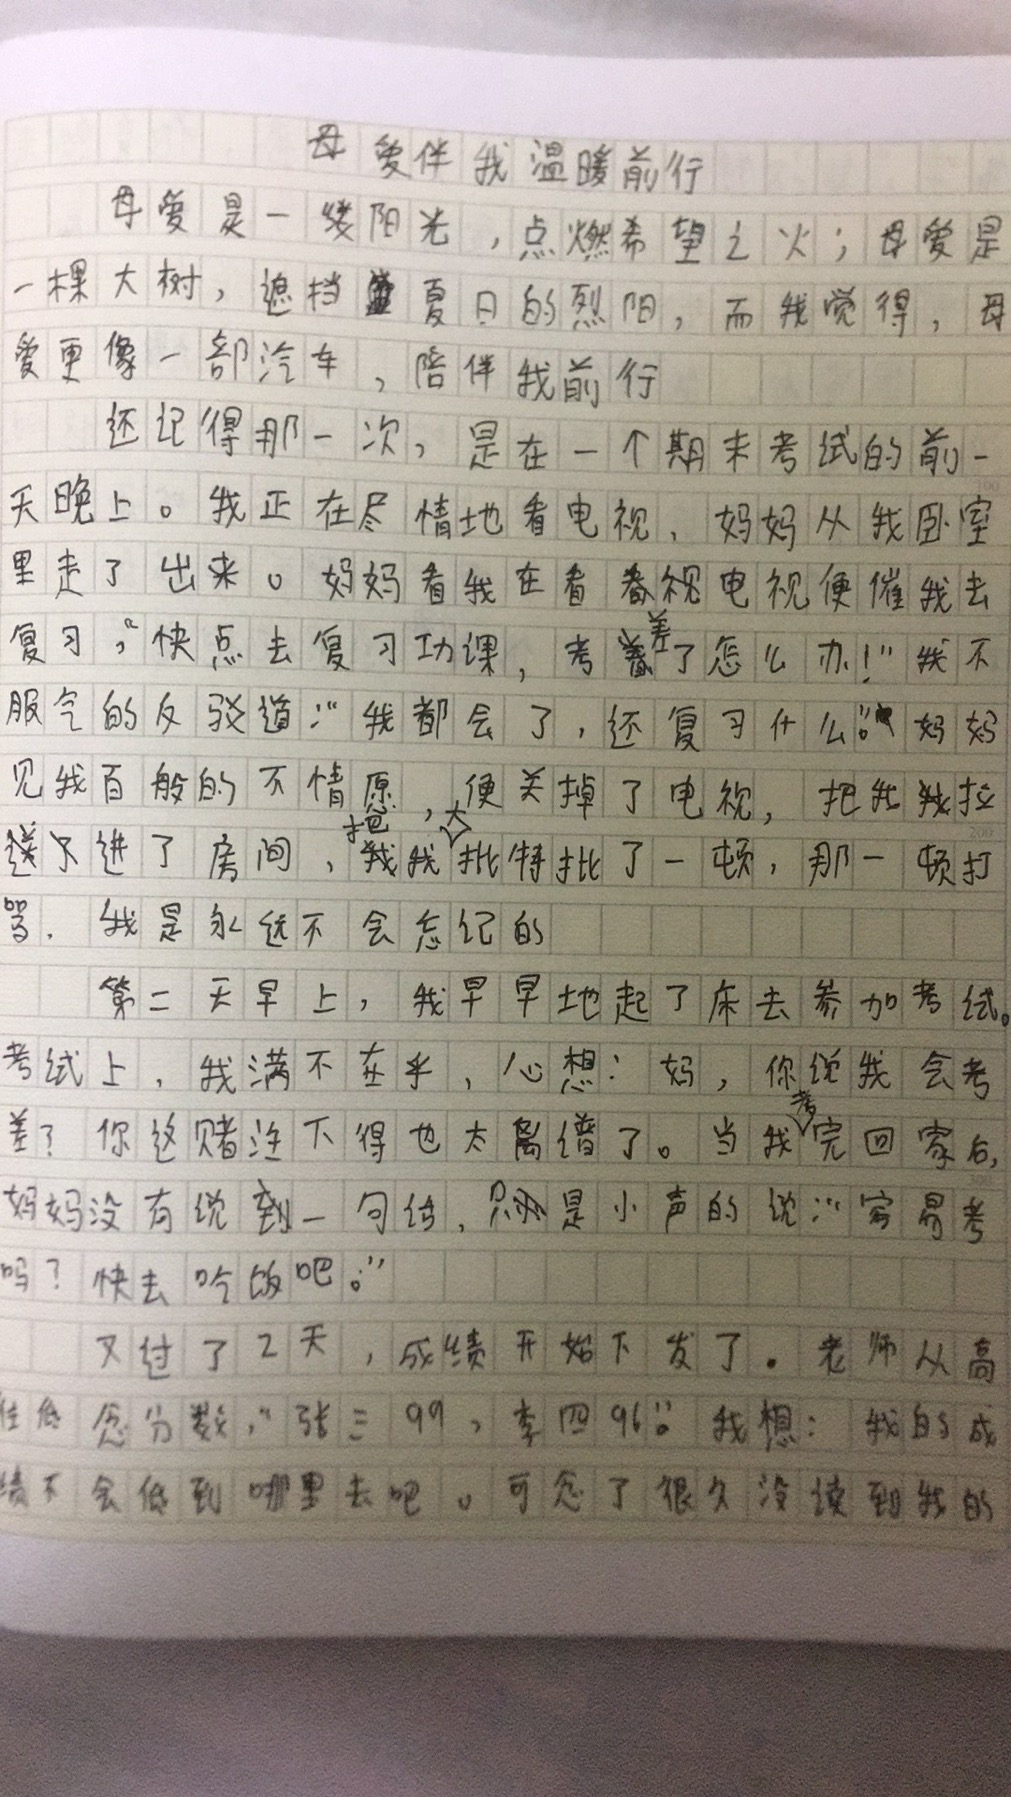 母爱伴我温暖前行
母爱是一缕阳光，点燃希望之火；母爱是
一棵大树，遮挡夏日的烈阳，而我觉得，母
爱更像一部汽车，陪伴我前行
还记得那一次，是在一个期末考试的前一
天晚上。我正在尽情地看电视，妈妈从我卧室
里走了出来。妈妈看我在看看视电视便催我去
复习，“快点去复习功课，考差了怎么办！”我不
服气的反驳道：“我都会了，还复习什么。”妈妈
见我百般的不情愿，便关掉了电视，把我我拉
进了房间，把我大批特批了一顿，那一顿打
骂．我是永远不会忘记的
第二天早上，我早早地起了床去参加考试。
考试上，我满不在乎，心想：妈，你说我会考
差？你这赌注下得也太离谱了。当我考完回家后，
妈妈没有说到一句话，只是小声的说：“容易考
吗？快去吃饭吧。”
又过了2天，成绩开始下发了。老师从高
往低念分数，“张三99，李四96。”我想：我的成
绩不会低到哪里去吧。可念了很久没读到我的